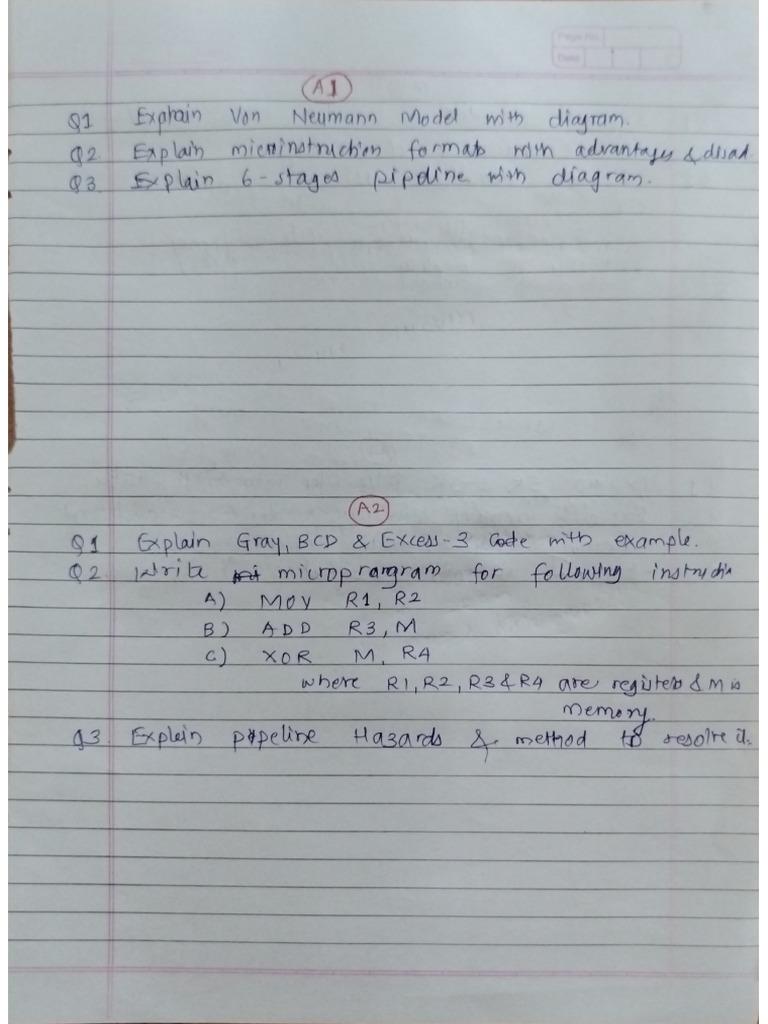 Page No.
Date
A1
Q1 Explain Von Neumann Model with diagram.
Q2. Explain microinstruction formats with advantages & disad.
Q3. Explain 6-stages pipeline with diagram.
A2
Q1 Explain Gray, BCD & Excess-3 Code with example.
Q2. Write microprangram for following instructin
A) MOV R1, R2
B) ADD R3, M
C) XOR M, R4
where R1, R2, R3 & R4 are registers & M is
memory.
Q3. Explein pipeline Hazards & method to resolve it.